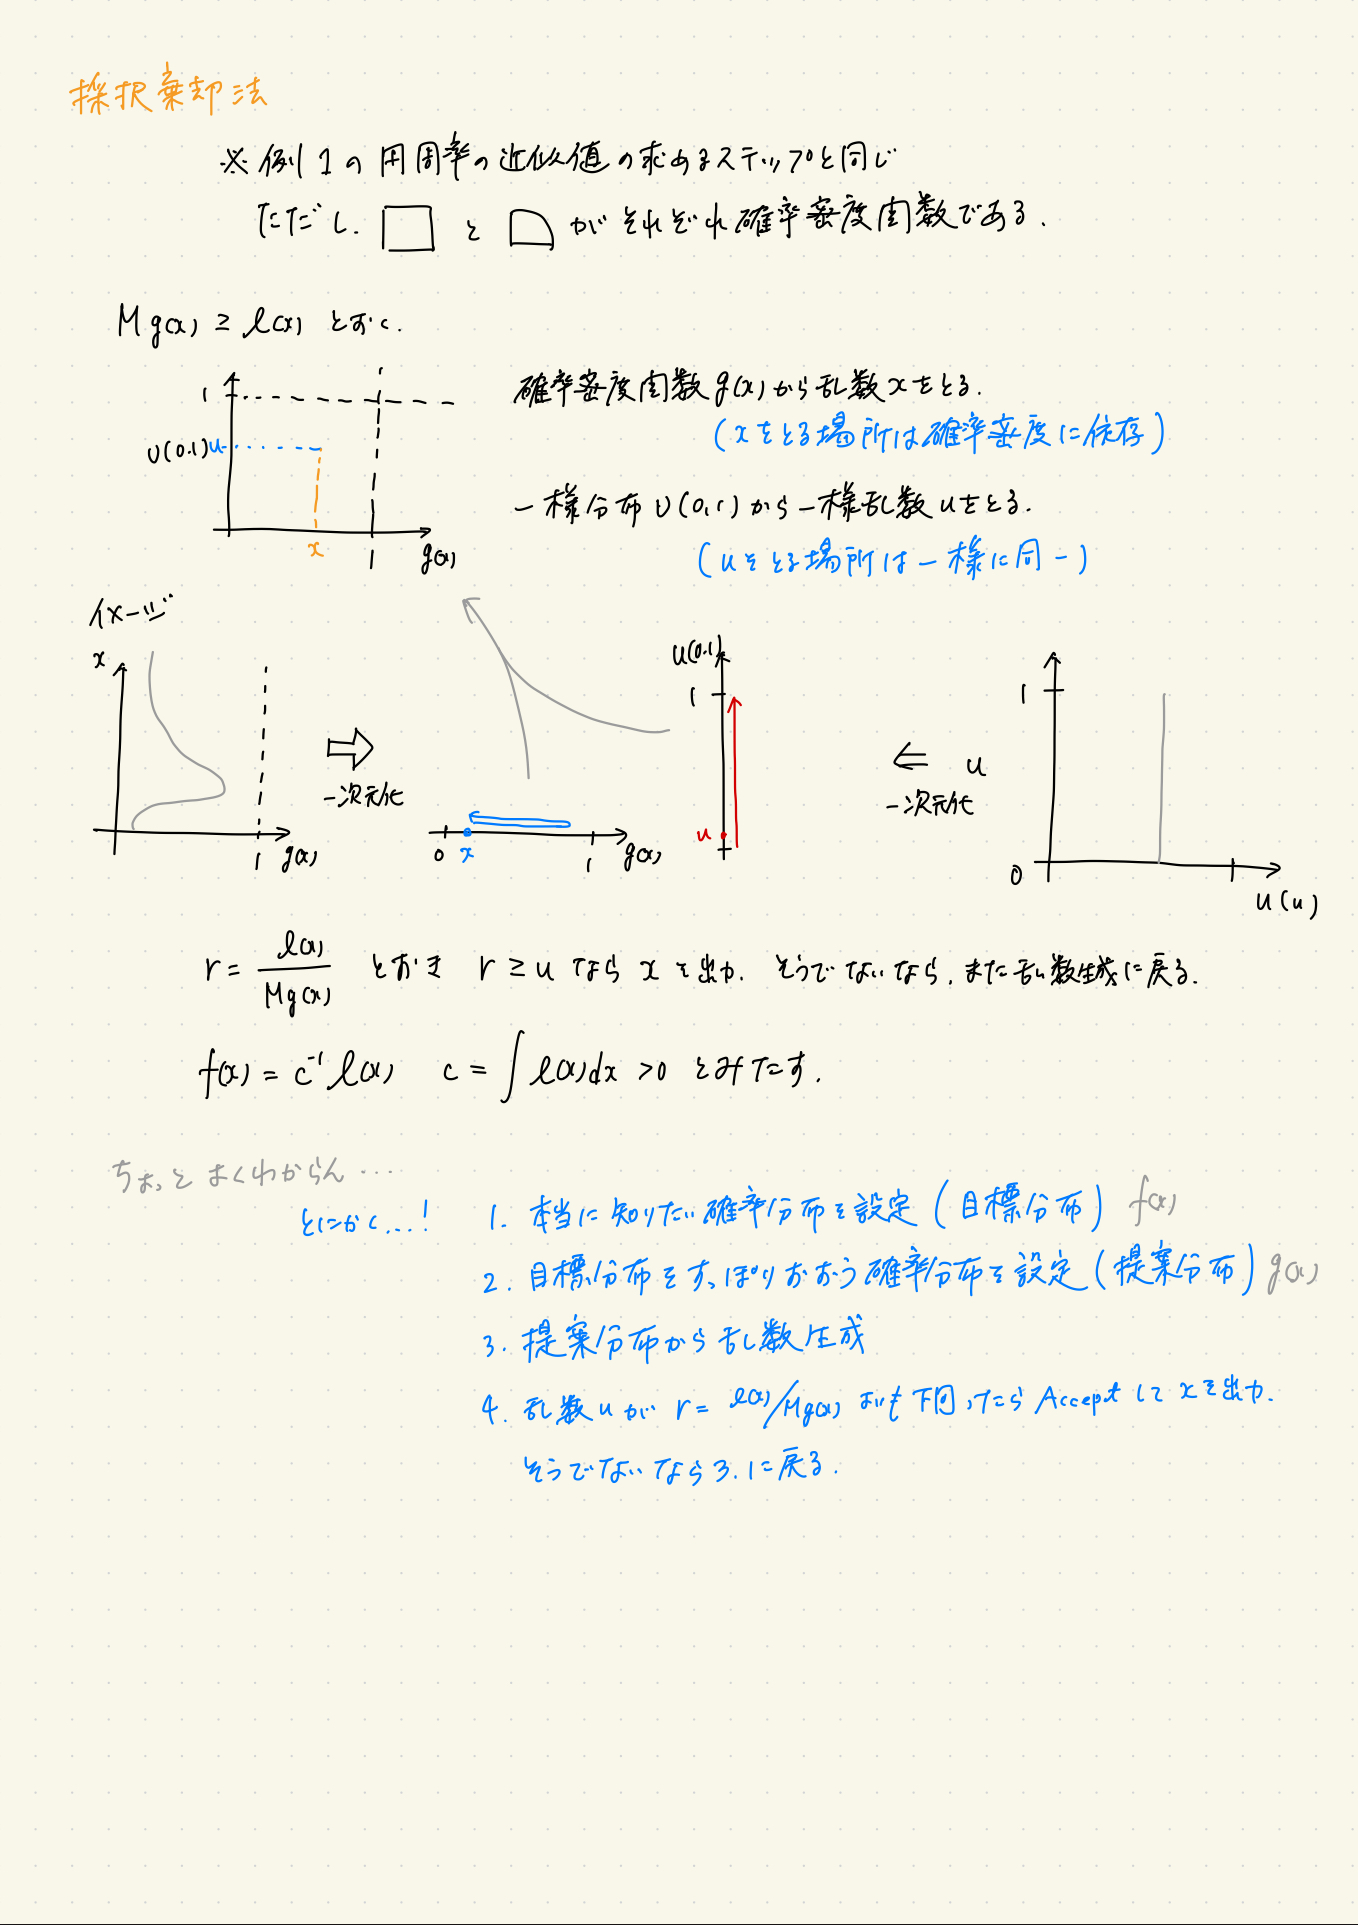 採択棄却法
※ 例1の円周率の近似値の求めるステップと同じ
ただし、□ と がそれぞれ確率密度関数である.
Mg(x) ≥ l(x) とおく.
確率密度関数 g(x) から乱数 x をとる.
(x をとる場所は確率密度に依存)
一様分布 U(0,1) から一様乱数 u をとる.
(u をとる場所は一様に同一)
1
U(0.1) u
x
1
g(x)
イメージ
x
1
g(x)
⇒
一次元化
0
x
1
g(x)
U(0.1)
1
u
⇐ u
一次元化
1
0
U(u)
r = l(x) / Mg(x) とおき r ≥ u なら x を出力. そうでないなら, また乱数生成に戻る.
f(x) = c⁻¹ l(x) c = ∫ l(x)dx > 0 をみたす.
ちょっと よくわからん…
とにかく…!
1. 本当に知りたい確率分布を設定 (目標分布) f(x)
2. 目標分布をすっぽりおおう確率分布を設定 (提案分布) g(x)
3. 提案分布から乱数生成
4. 乱数 u が r = l(x)/Mg(x) よりも下回ったら Accept して x を出力.
そうでないなら 3. に戻る.